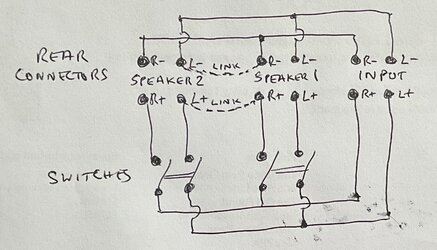 REAR
CONNECTORS
R- L- LINK R- L- R- L-
SPEAKER 2 SPEAKER 1 INPUT
R+ L+ LINK R+ L+ R+ L+
SWITCHES